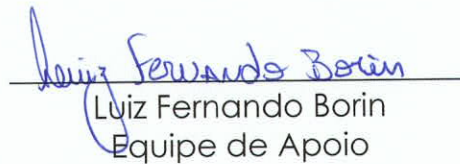 Luiz Fernando Borin
Luiz Fernando Borin
Equipe de Apoio